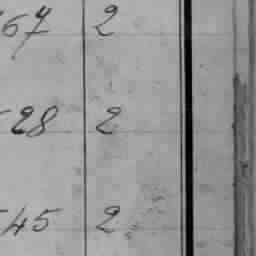 67 2
28 2
45 2